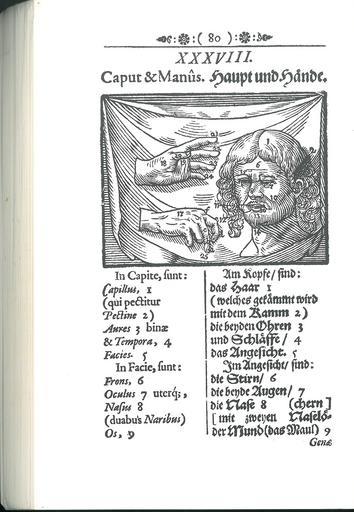 ( 80 )
XXXVIII.
Caput & Manûs. Haupt und Hände.
In Capite, sunt:
Capillus, 1
(qui pectitur
Pectine 2)
Aures 3 binæ
& Tempora, 4
Facies. 5
In Facie, sunt:
Frons, 6
Oculus 7 uterq;,
Nasus 8
(duabus Naribus)
Os, 9
Am Kopfe/ sind:
das Haar 1
(welches gekämmt wird
mit dem Kamm 2)
die beyden Ohren 3
und Schläffe/ 4
das Angesicht. 5
Im Angesicht/ sind:
die Stirn/ 6
die beyde Augen/ 7
die Nase 8 (chern]
[mit zweyen Naselö-
der Mund (das Maul) 9
Genæ